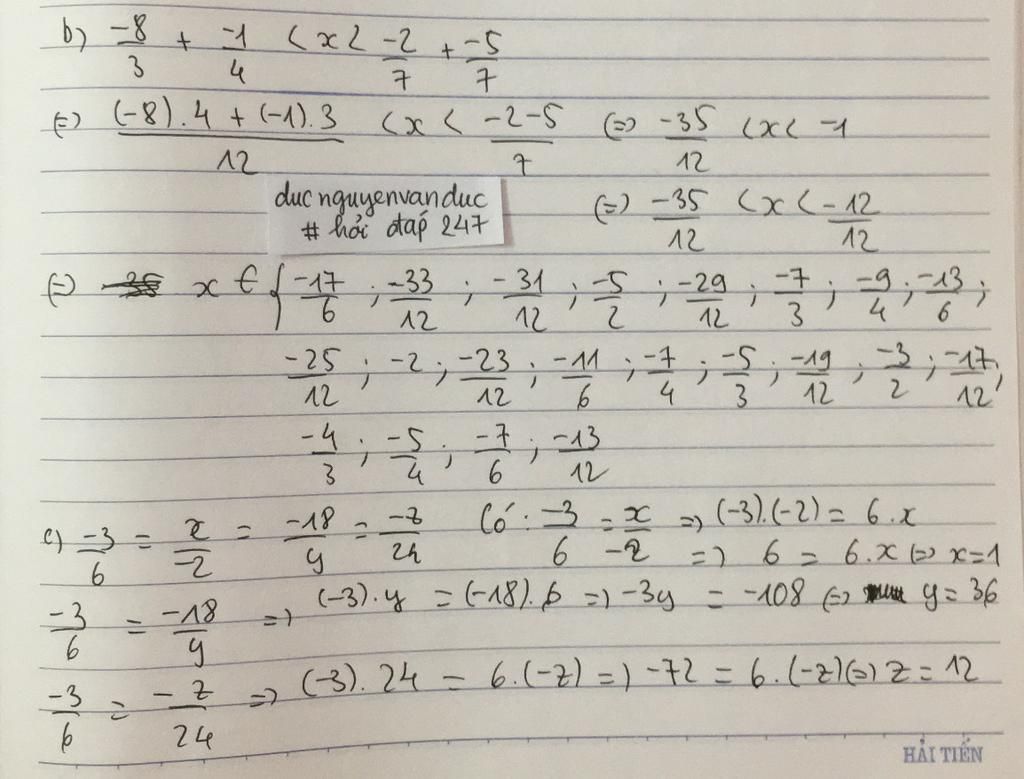 b) -8/3 + -1/4 < x < -2/7 + -5/7
(=) (-8).4 + (-1).3/12 < x < -2-5/7 (=) -35/12 < x < -1
ducnguyenvanduc
# hỏi đáp 247
(=) -35/12 < x < -12/12
(=) x ∈ { -17/6 ; -33/12 ; -31/12 ; -5/2 ; -29/12 ; -7/3 ; -9/4 ; -13/6 ;
-25/12 ; -2 ; -23/12 ; -11/6 ; -7/4 ; -5/3 ; -19/12 ; -3/2 ; -17/12 ;
-4/3 ; -5/4 ; -7/6 ; -13/12
c) -3/6 = x/-2 = -18/y = -z/24 Có : -3/6 = x/-2 => (-3).(-2) = 6.x
=> 6 = 6.x (=) x=1
-3/6 = -18/y => (-3).y = (-18).6 => -3y = -108 (=) y = 36
-3/6 = -z/24 => (-3).24 = 6.(-z) => -72 = 6.(-z) (=) z = 12
HẢI TIẾN